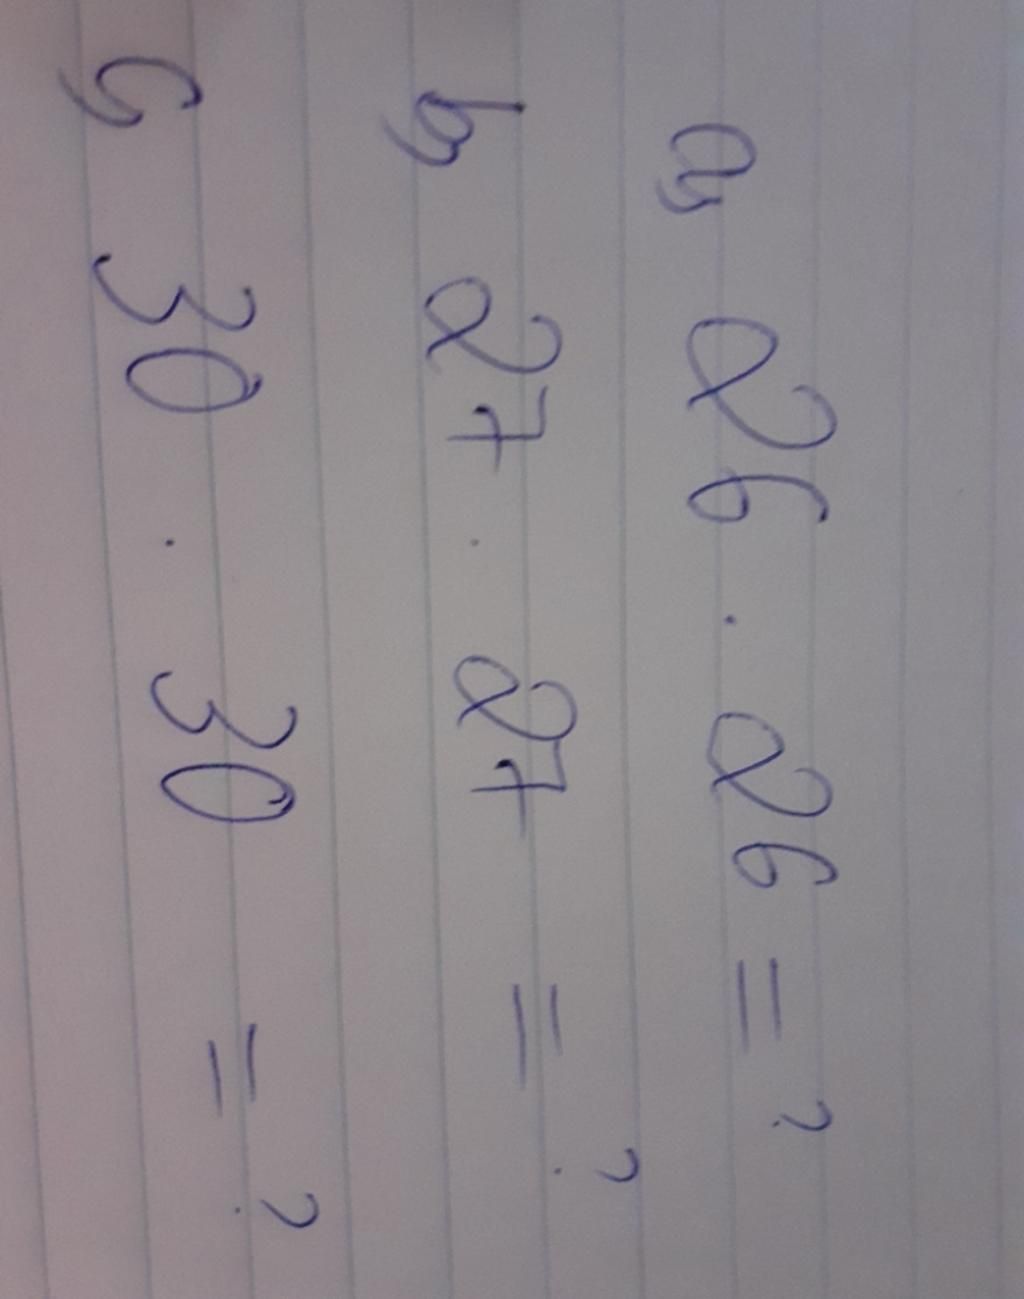 a, 26 . 26 = ?
b, 27 . 27 = ?
c, 30 . 30 = ?